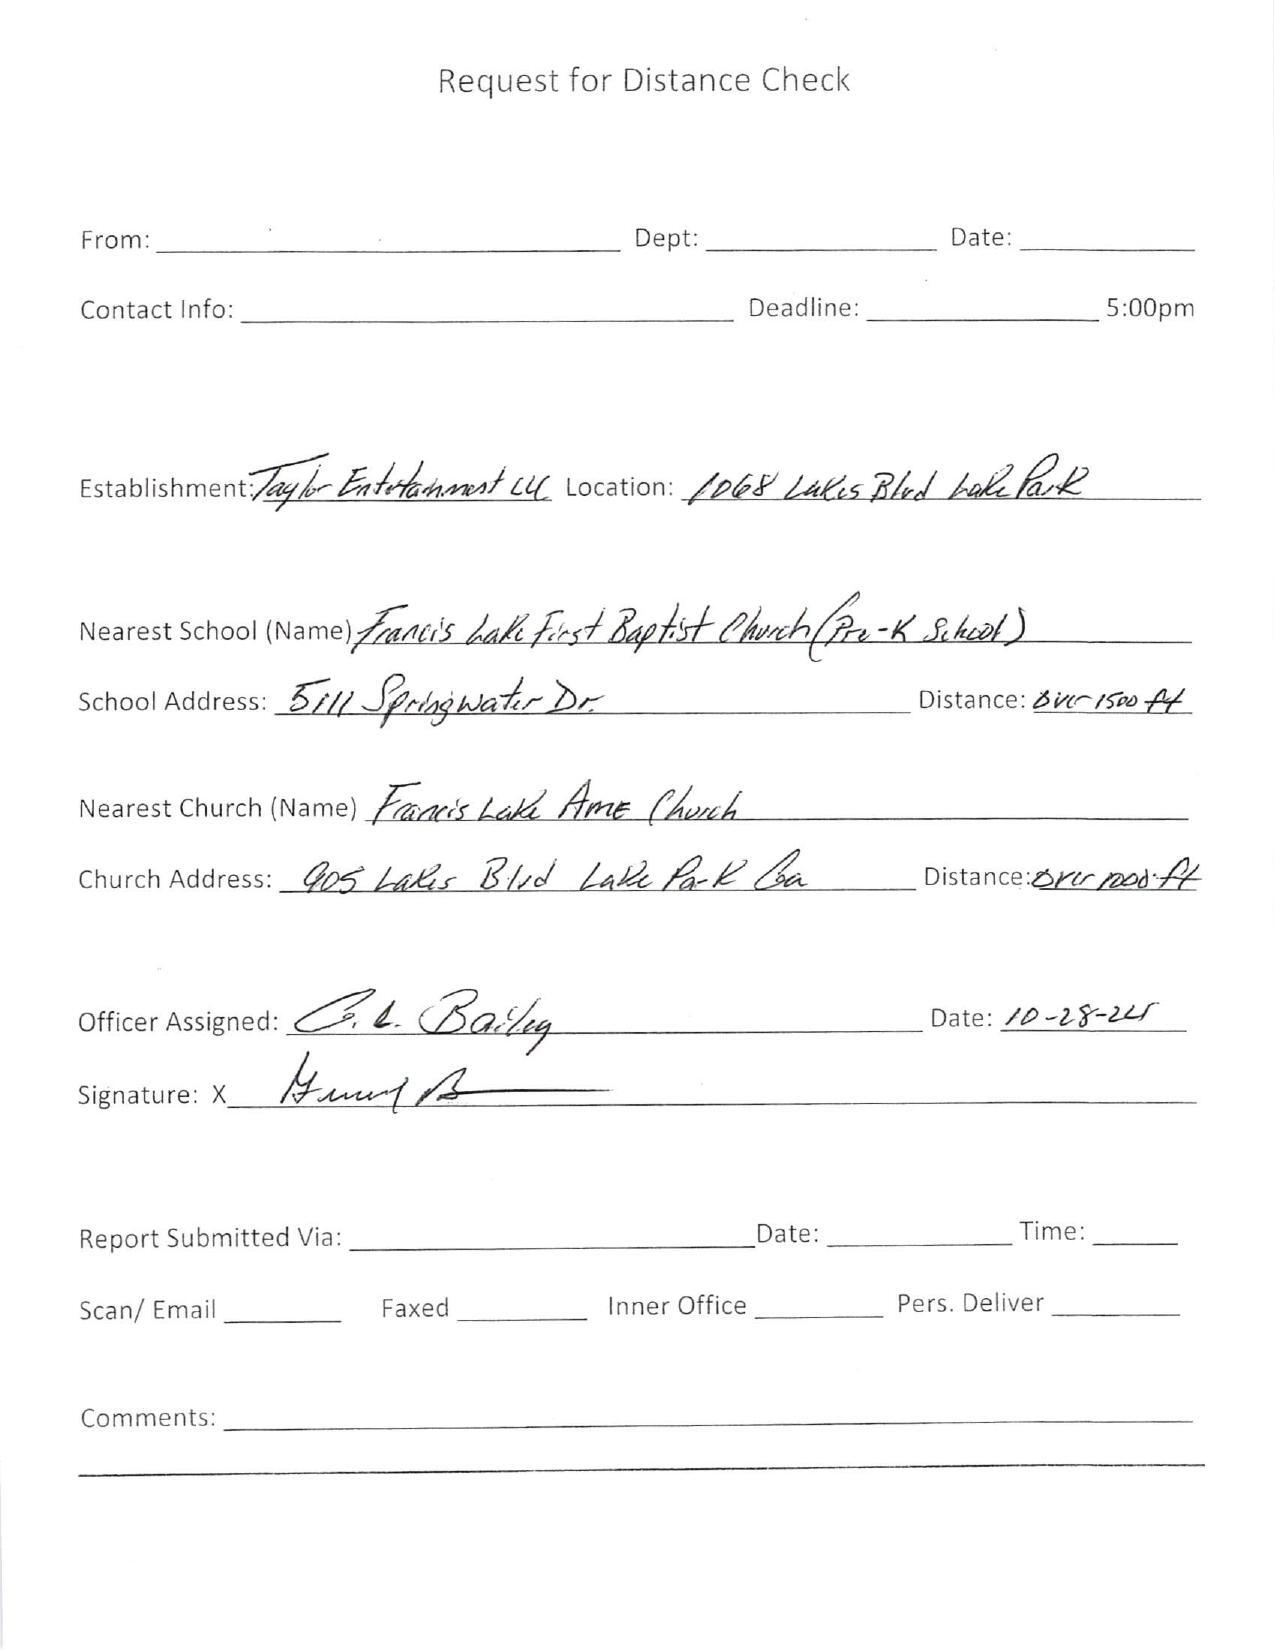 Request for Distance Check
From: Dept: Date:
Contact Info: Deadline: 5:00pm
Establishment: Taylor Entertainment LLC Location: 1068 Lakes Blvd Lake Park
Nearest School (Name) Francis Lake First Baptist Church (Pre-K School)
School Address: 5111 Springwater Dr. Distance: Over 1500 ft
Nearest Church (Name) Francis Lake AME Church
Church Address: 905 Lakes Blvd Lake Park Ga Distance: Over 1000 ft
Officer Assigned: G. L. Bailey Date: 10-28-24
Signature: X
Report Submitted Via: Date: Time:
Scan/ Email Faxed Inner Office Pers. Deliver
Comments: